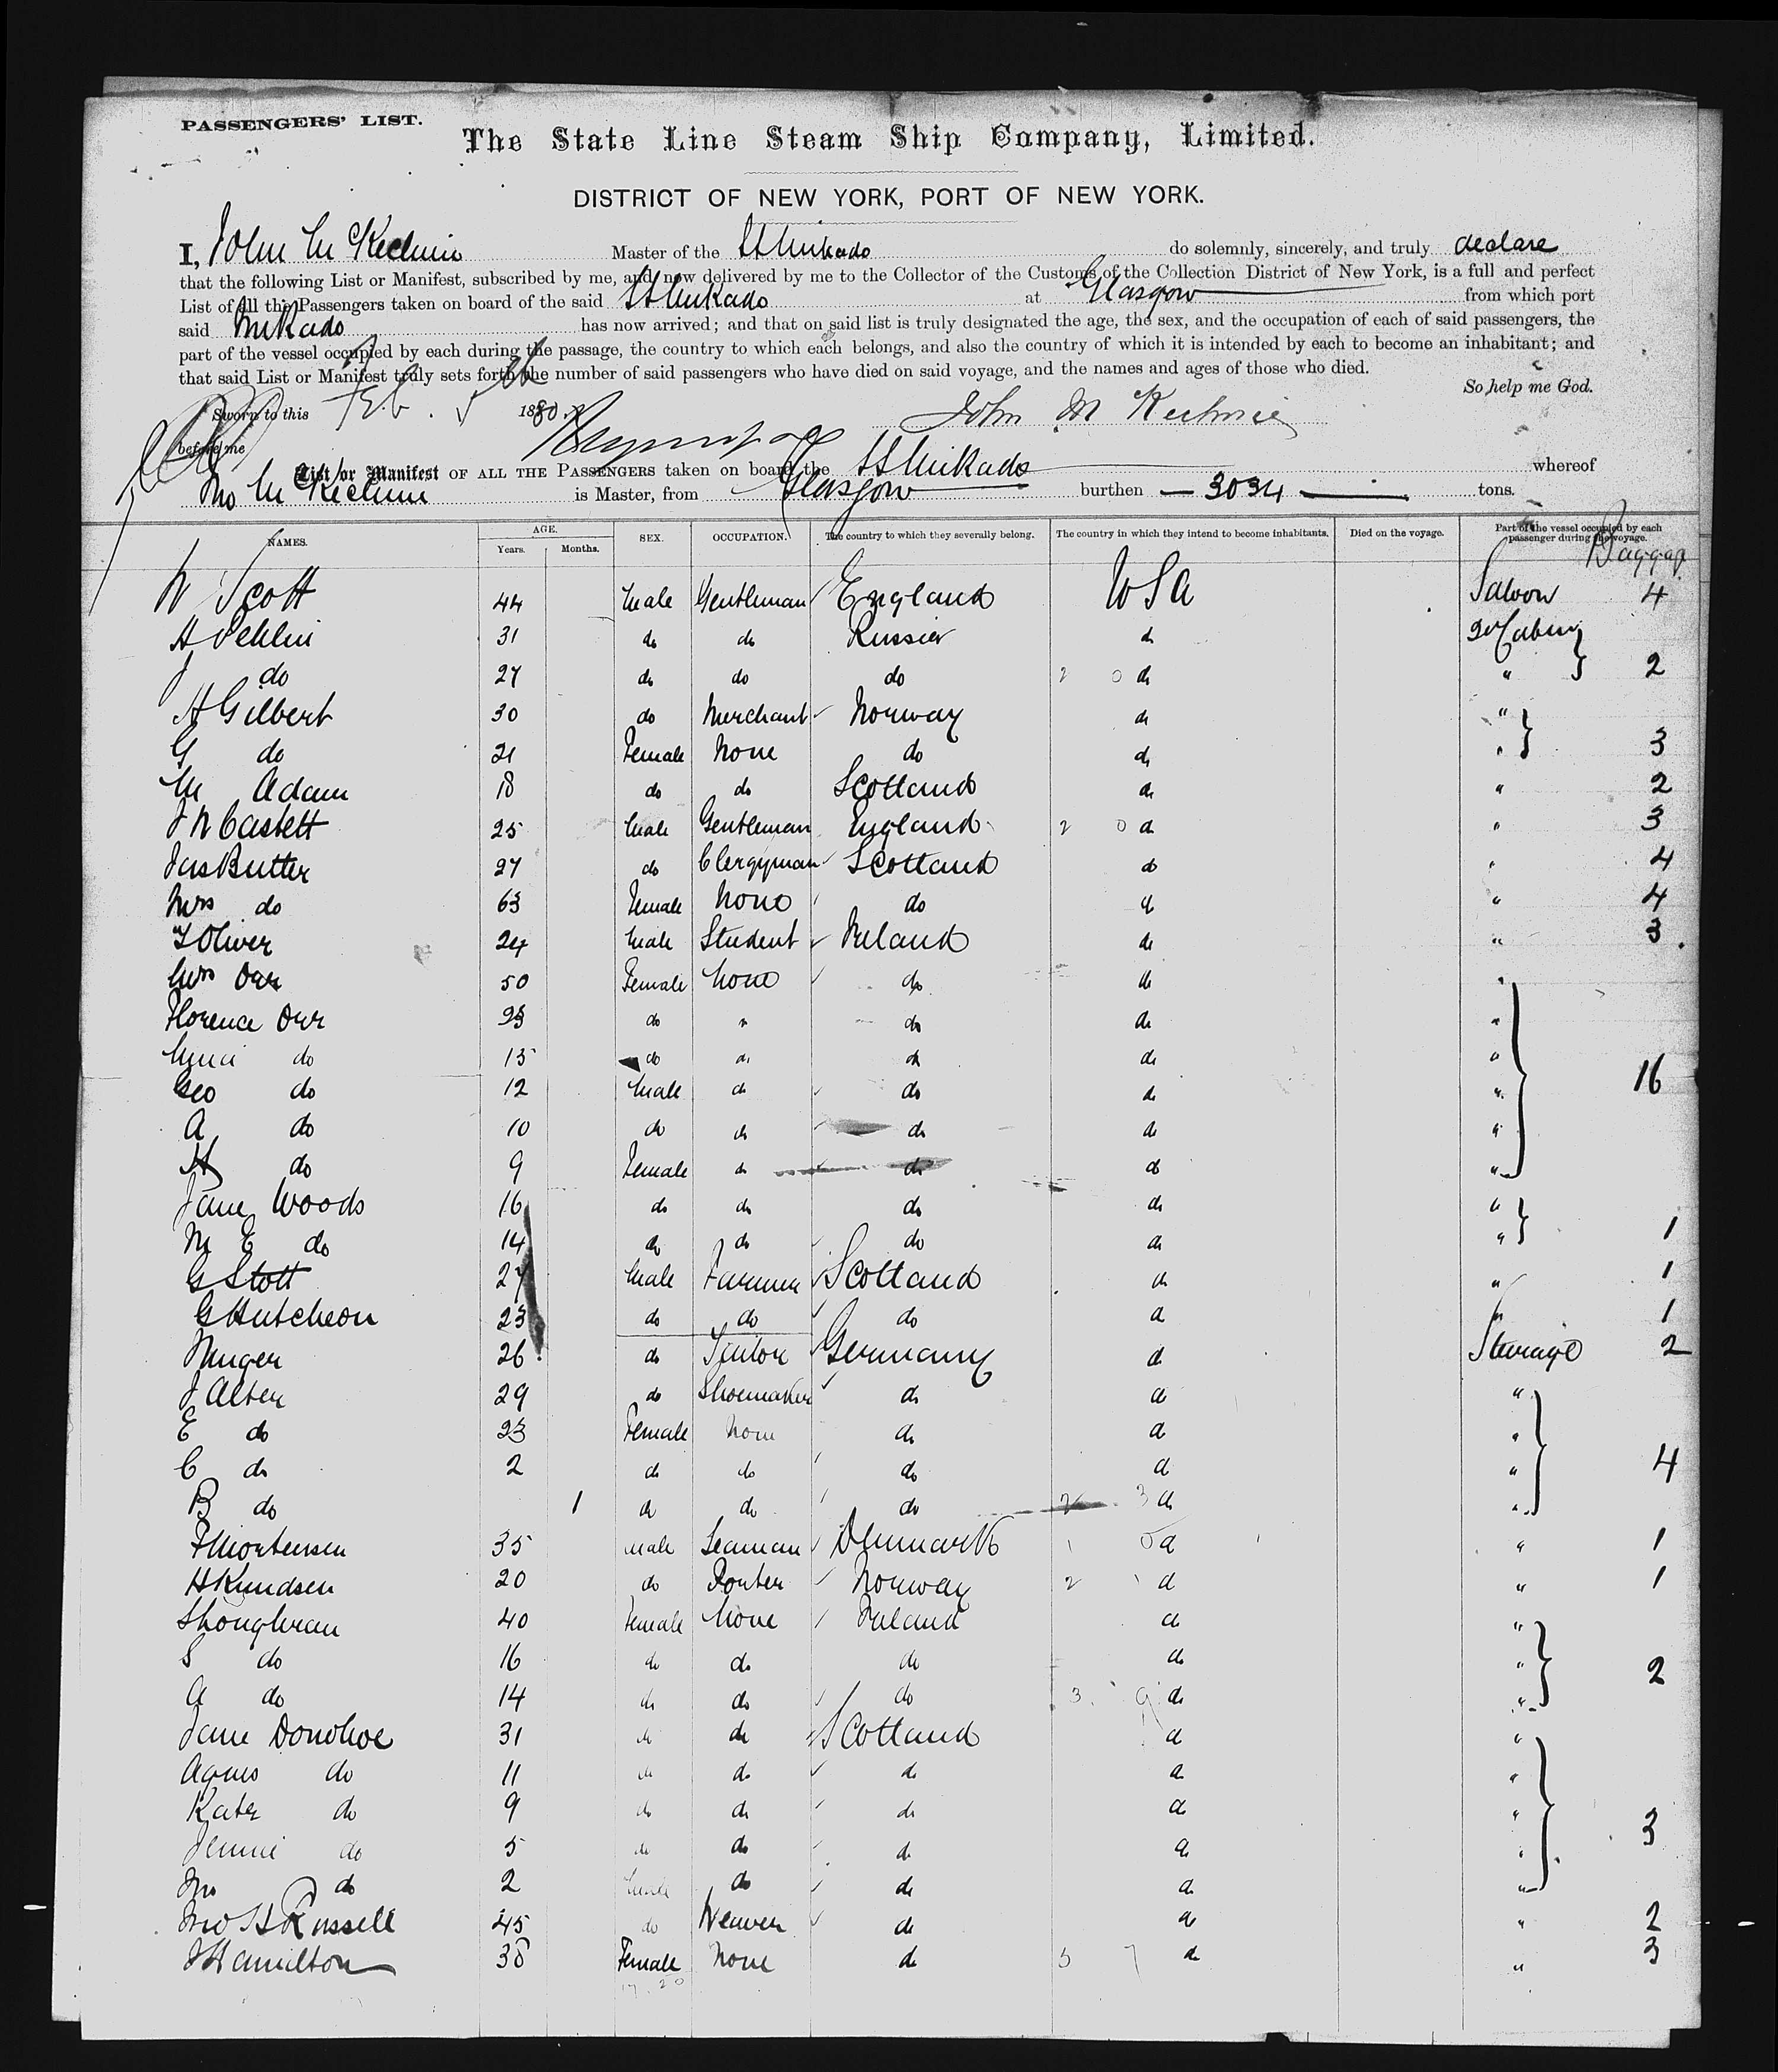 PASSENGERS' LIST.
The State Line Steam Ship Company, Limited.
DISTRICT OF NEW YORK, PORT OF NEW YORK.
I, John McKechnie Master of the SS Mikado do solemnly, sincerely, and truly declare
that the following List or Manifest, subscribed by me, and now delivered by me to the Collector of the Customs of the Collection District of New York, is a full and perfect
List of all the Passengers taken on board of the said SS Mikado at Glasgow from which port
said Mikado has now arrived; and that on said list is truly designated the age, the sex, and the occupation of each of said passengers, the
part of the vessel occupied by each during the passage, the country to which each belongs, and also the country of which it is intended by each to become an inhabitant; and
that said List or Manifest truly sets forth the number of said passengers who have died on said voyage, and the names and ages of those who died.
So help me God.
Sworn to this Feb. 5th 1880 John McKechnie
before me
List or Manifest OF ALL THE PASSENGERS taken on board the SS Mikado whereof
Jno McKechnie is Master, from Glasgow burthen 3034 tons.
NAMES. AGE. Years. Months. SEX. OCCUPATION. The country to which they severally belong. The country in which they intend to become inhabitants. Died on the voyage. Part of the vessel occupied by each passenger during the voyage. Baggage
W Scott 44 Male Gentleman England USA Saloon 4
A 31 do do Russia do 2d Cabin
J do 27 do do do do " 2
A Gilbert 30 do Merchant Norway do "
G do 21 Female None do do " 3
M Adam 18 do do Scotland do " 2
25 Male Gentleman England do " 3
Jas Butter 27 do Clergyman Scotland do " 4
Mrs do 63 Female None do do " 4
T Oliver 24 Male Student Ireland do " 3
Mrs Orr 50 Female None do do "
Florence Orr do " do do "
do 15 do do do do "
Geo do 12 Male do do do " 16
A do 10 do do do do "
H do 9 Female do do do "
Jane Woods 16 do do do do "
M E do 14 do do do do " 1
G Stott 27 Male Farmer Scotland do " 1
G Hutcheon 23 do do do do " 1
26 do Tailor Germany do Steerage 2
J Alter 29 do Shoemaker do do "
E do 23 Female None do do "
C do 2 do do do do " 4
B do 1 do do do do "
F Mortensen 35 Male Seaman Denmark do " 1
H Knudsen 20 do Porter Norway do " 1
40 Female None Ireland do "
S do 16 do do do do " 2
A do 14 do do do do "
Jane Donohoe 31 do do Scotland do "
Agnes do 11 do do do do "
Kate do 9 do do do do "
Jennie do 5 do do do do " 3
Jno do 2 Male do do do "
Jno H Russell 45 do Weaver do do " 2
J Hamilton 38 Female None do do " 3